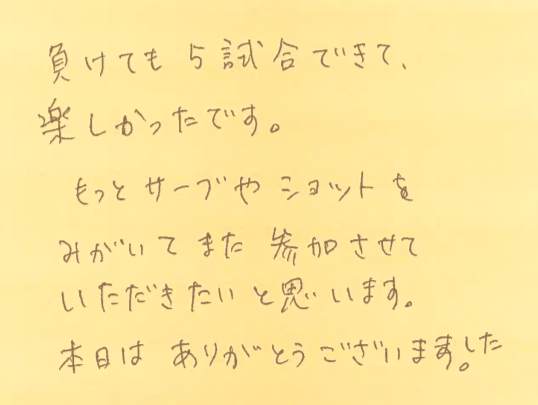 負けても5試合できて、
楽しかったです。
もっとサーブやショットを
みがいてまた参加させて
いただきたいと思います。
本日はありがとうございます。した